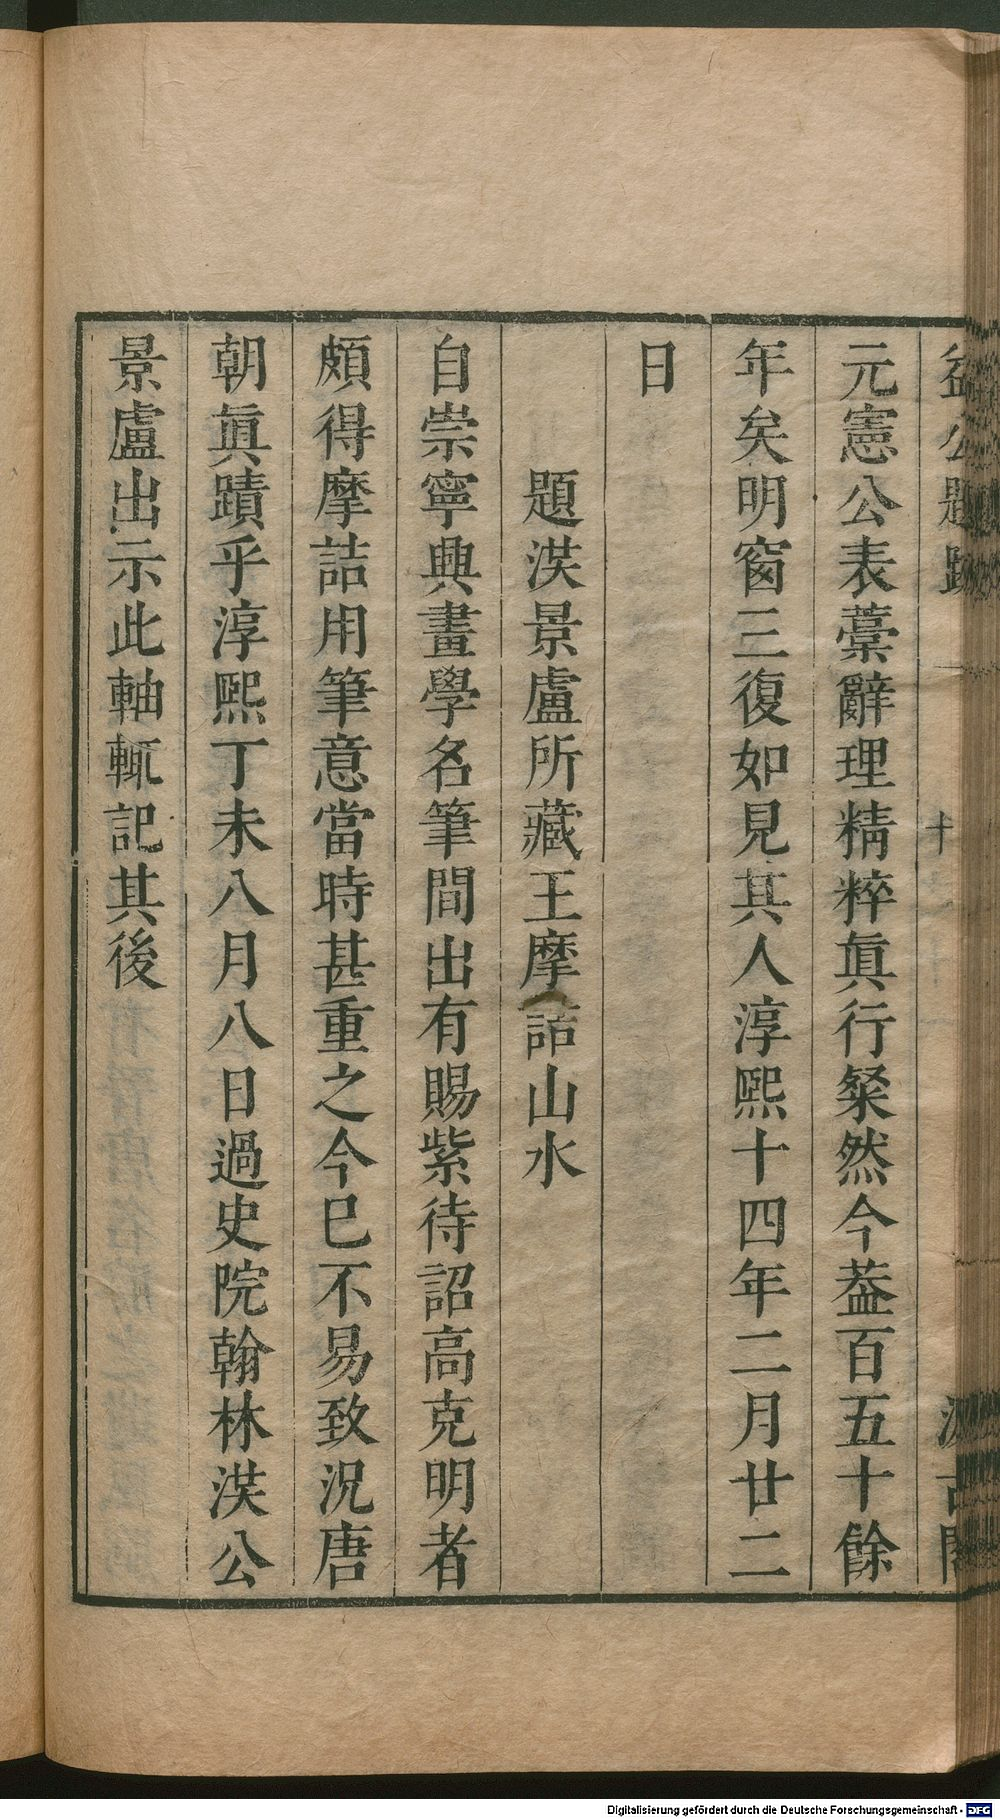 益公題跋 十 汲古閣
元憲公表藁辭理精粹眞行粲然今葢百五十餘
年矣明窗三復如見其人淳熙十四年二月廿二
日
題洪景盧所藏王摩詰山水
自崇寧興畫學名筆間出有賜紫待詔高克明者
頗得摩詰用筆意當時甚重之今已不易致況唐
朝眞蹟乎淳熙丁未八月八日過史院翰林洪公
景盧出示此軸輒記其後
Digitalisierung gefördert durch die Deutsche Forschungsgemeinschaft - DFG